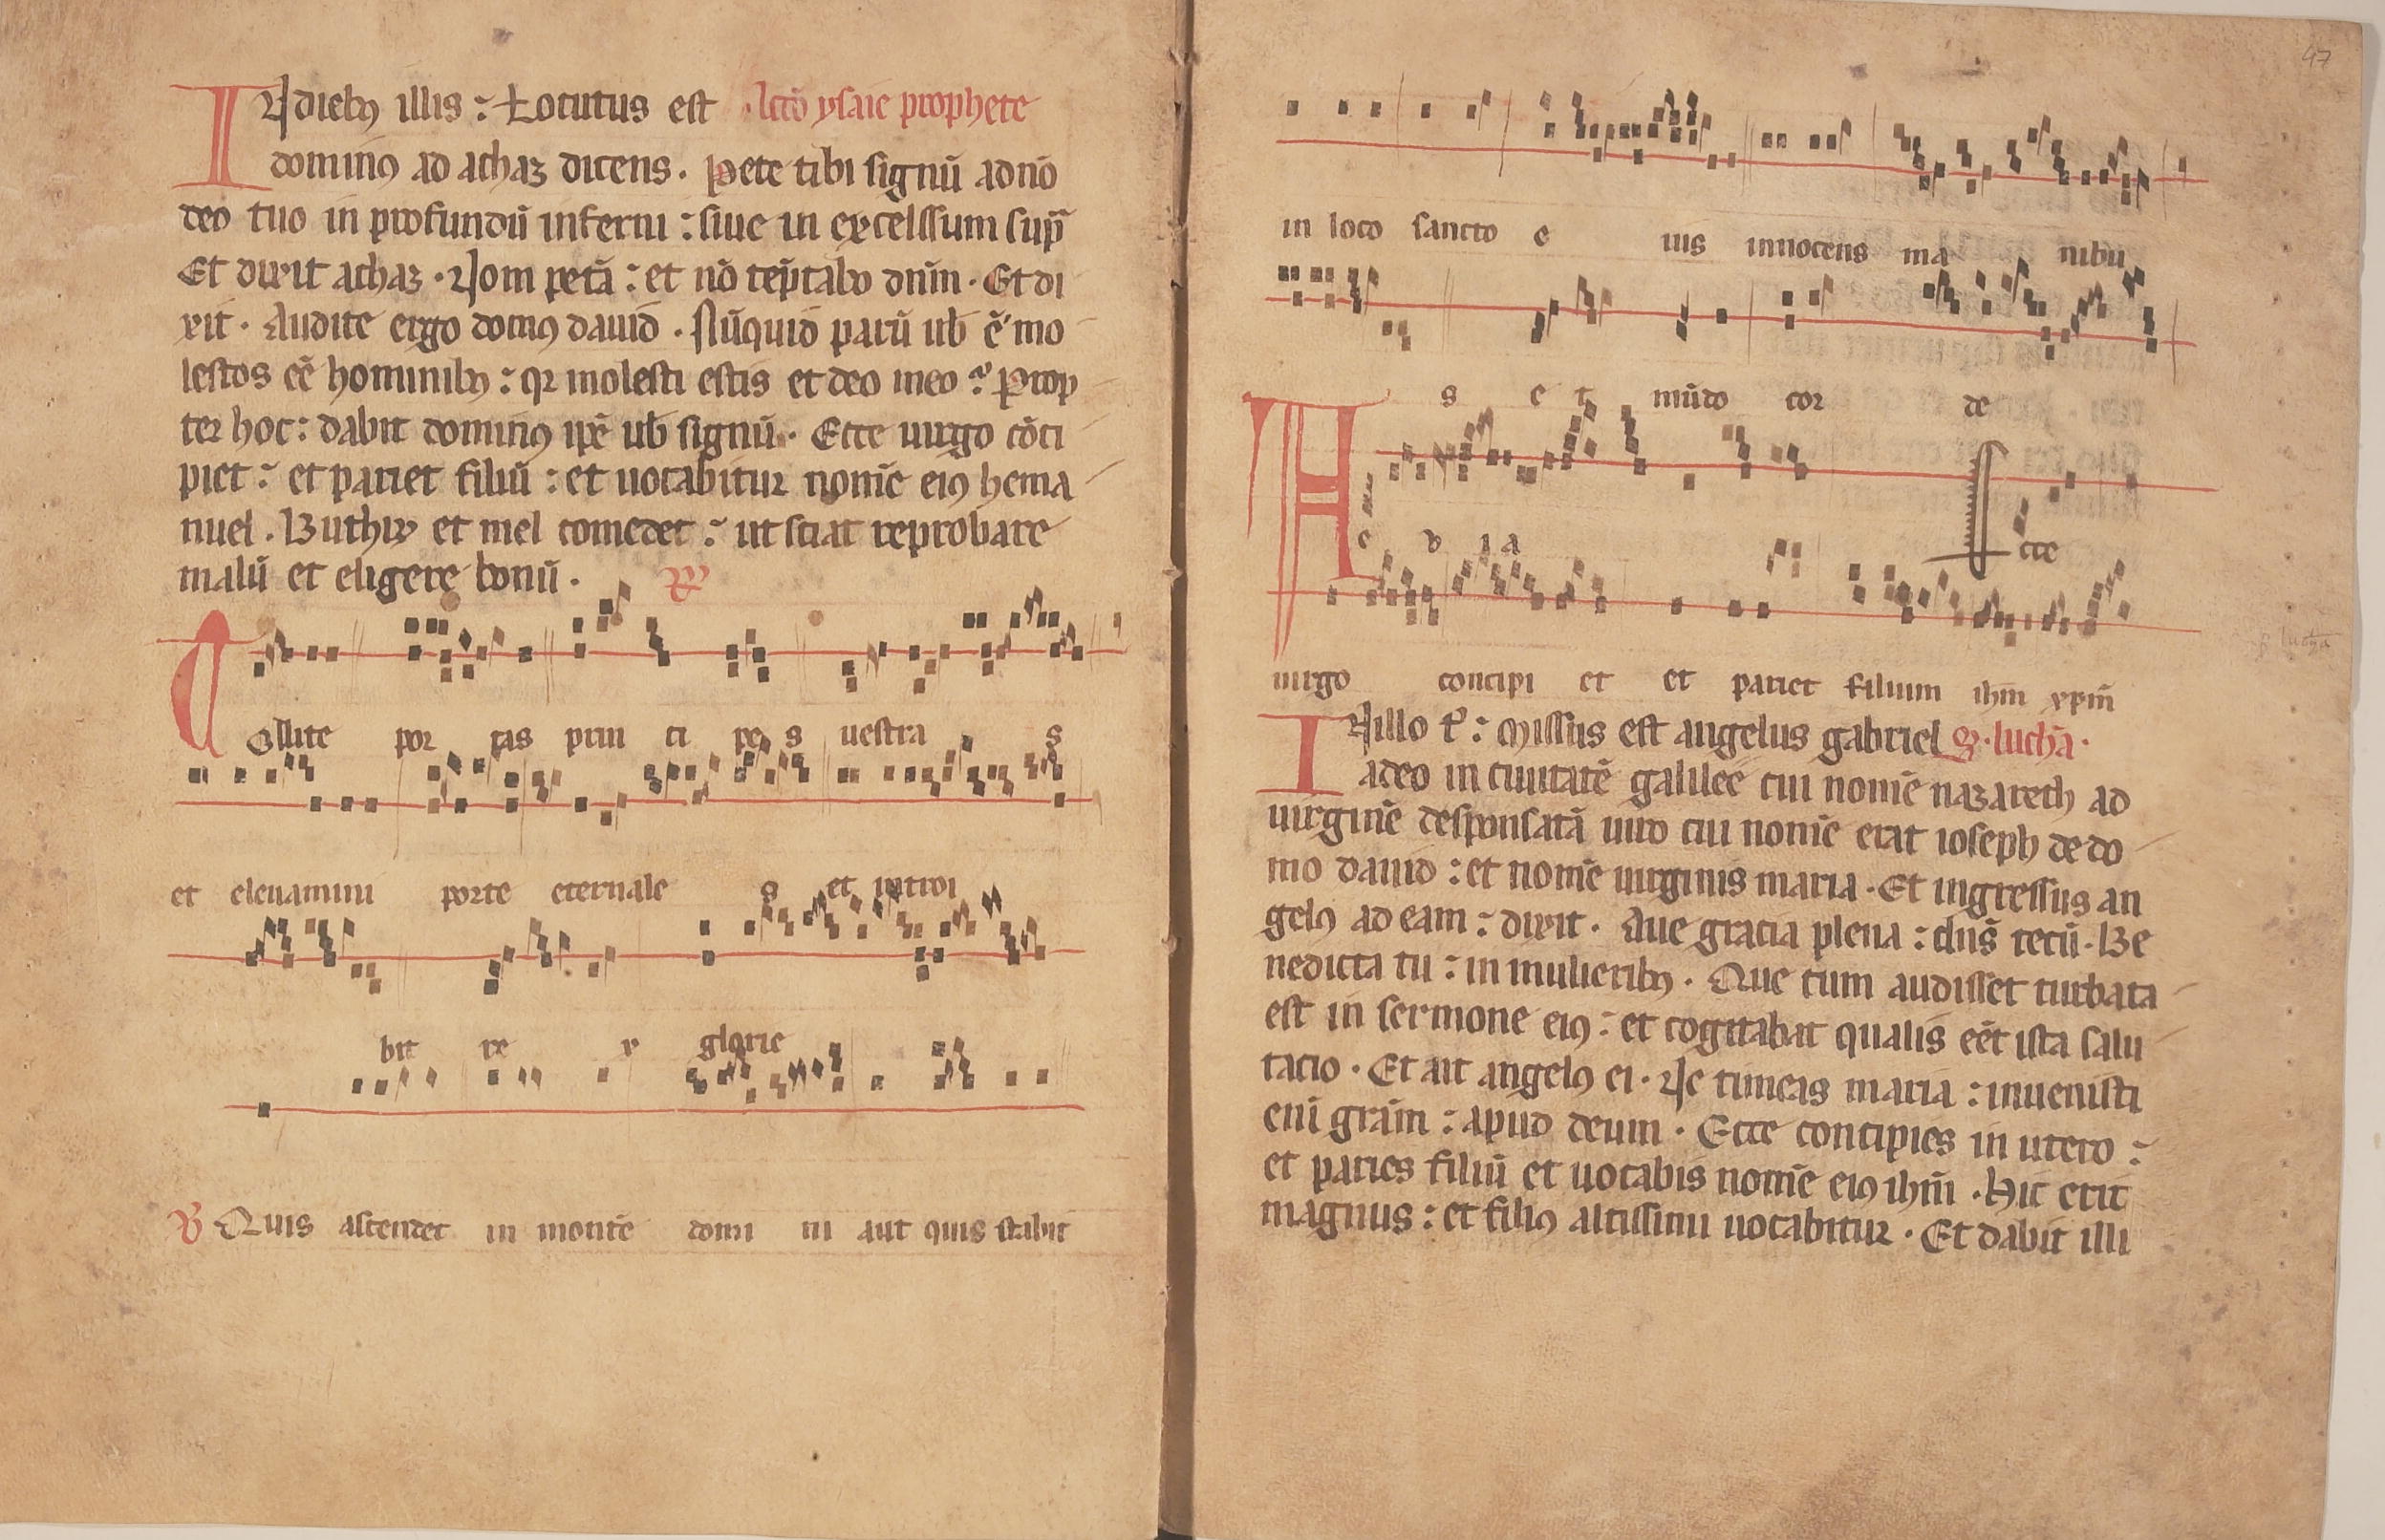 In dieb9 illis : Locutus est lcĉo ysaie prophete
domin9 ad achaz dicens . Pete tibi signū a dnō
deo tuo in profundū inferni : siue in excelssum sup̄
Et dixit achaz . Nom petā : et nō tēptabo dn̄m . Et di
xit . Audite ergo dom9 dauid . Nūquid parū ub̄ ē mo
lestos eē hominib9 : qz molesti estis et deo meo ? Prop
ter hoc : dabit domin9 ip̄e ub̄ signū . Ecce uirgo cōci
piet : et pariet filiū : et uocabitur nom̄e ei9 hema
nuel . Buthirr et mel comedet : ut sciat reprobare
malū et eligere bonū .
Tollite por tas prin ci pe s uestra s
et eleuamini porte eternale s et introi
bit re x glorie
V Quis ascendet in montē domi ni aut quis stabit
47
in loco sancto e ius innocens ma nibu
s e t mūdo cor de
A e v i a Ecce
uirgo concipi et et pariet filium ihm̄ xp̄m
In illo t̄ : Missus est angelus gabriel S . luchā .
a deo in ciuitatē galilee cui nom̄e nazareth ad
uirginē desponsatā uiro cui nom̄e erat ioseph de do
mo dauid : et nom̄e uirginis maria . Et ingressus an
gel9 ad eam : dixit . Aue gracia plena : dn̄s tecū . Be
nedicta tu : in mulierib9 . Que cum audisset turbata
est in sermone ei9 : et cogitabat qualis eēt ista salu
tacio . Et ait angel9 ei . Ne timeas maria : inuenisti
eni grām : apud deum . Ecce concipies in utero :
et paries filiū et uocabis nom̄e ei9 ihm̄ . Hic erit
magnus : et fili9 altissimi uocabitur . Et dabit illi